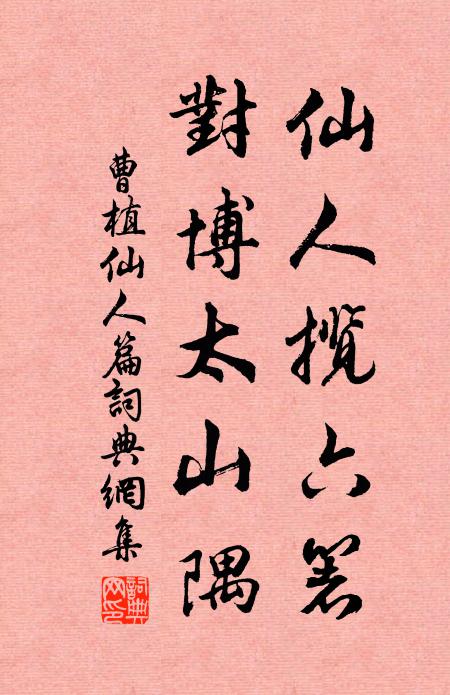 仙人攬六箸
對博太山隅
曹植仙人篇詞典網集
詞典網印